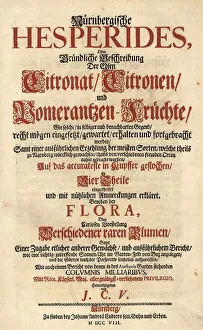 Nürnbergische
HESPERIDES,
Oder
Gründliche Beschreibung
Der Edlen
Citronat/ Citronen/
und
Pomerantzen-Früchte/
Wie solche/ in selbiger und benachbarten Gegend/
recht mögen eingesetzt/ gewartet/ erhalten und fortgebracht
werden/
Samt einer ausführlichen Erzehlung der meisten Sorten/ welche theils
zu Nürnberg würcklich gewachsen/ theils von verschiedenen fremden Orten
dahin gebracht worden/
Auf das accurateste in Kupffer gestochen/
in
Vier Theile
eingetheilet
und mit nützlichen Anmerckungen erkläret.
Beneben der
FLORA,
Oder
Curiosen Vorstellung
Verschiedener raren Blumen/
Samt
Einer Zugabe etlicher anderer Gewächse/ und ausführlichem Bericht/
COLUMNIS MILLIARIBUS.
PRIVILEGIO,
Herausgegeben
von
J. C. V.
Nürnberg/
Zu finden bey Johann Andreä Endters seel. Sohn und Erben.
M DCC VIII.